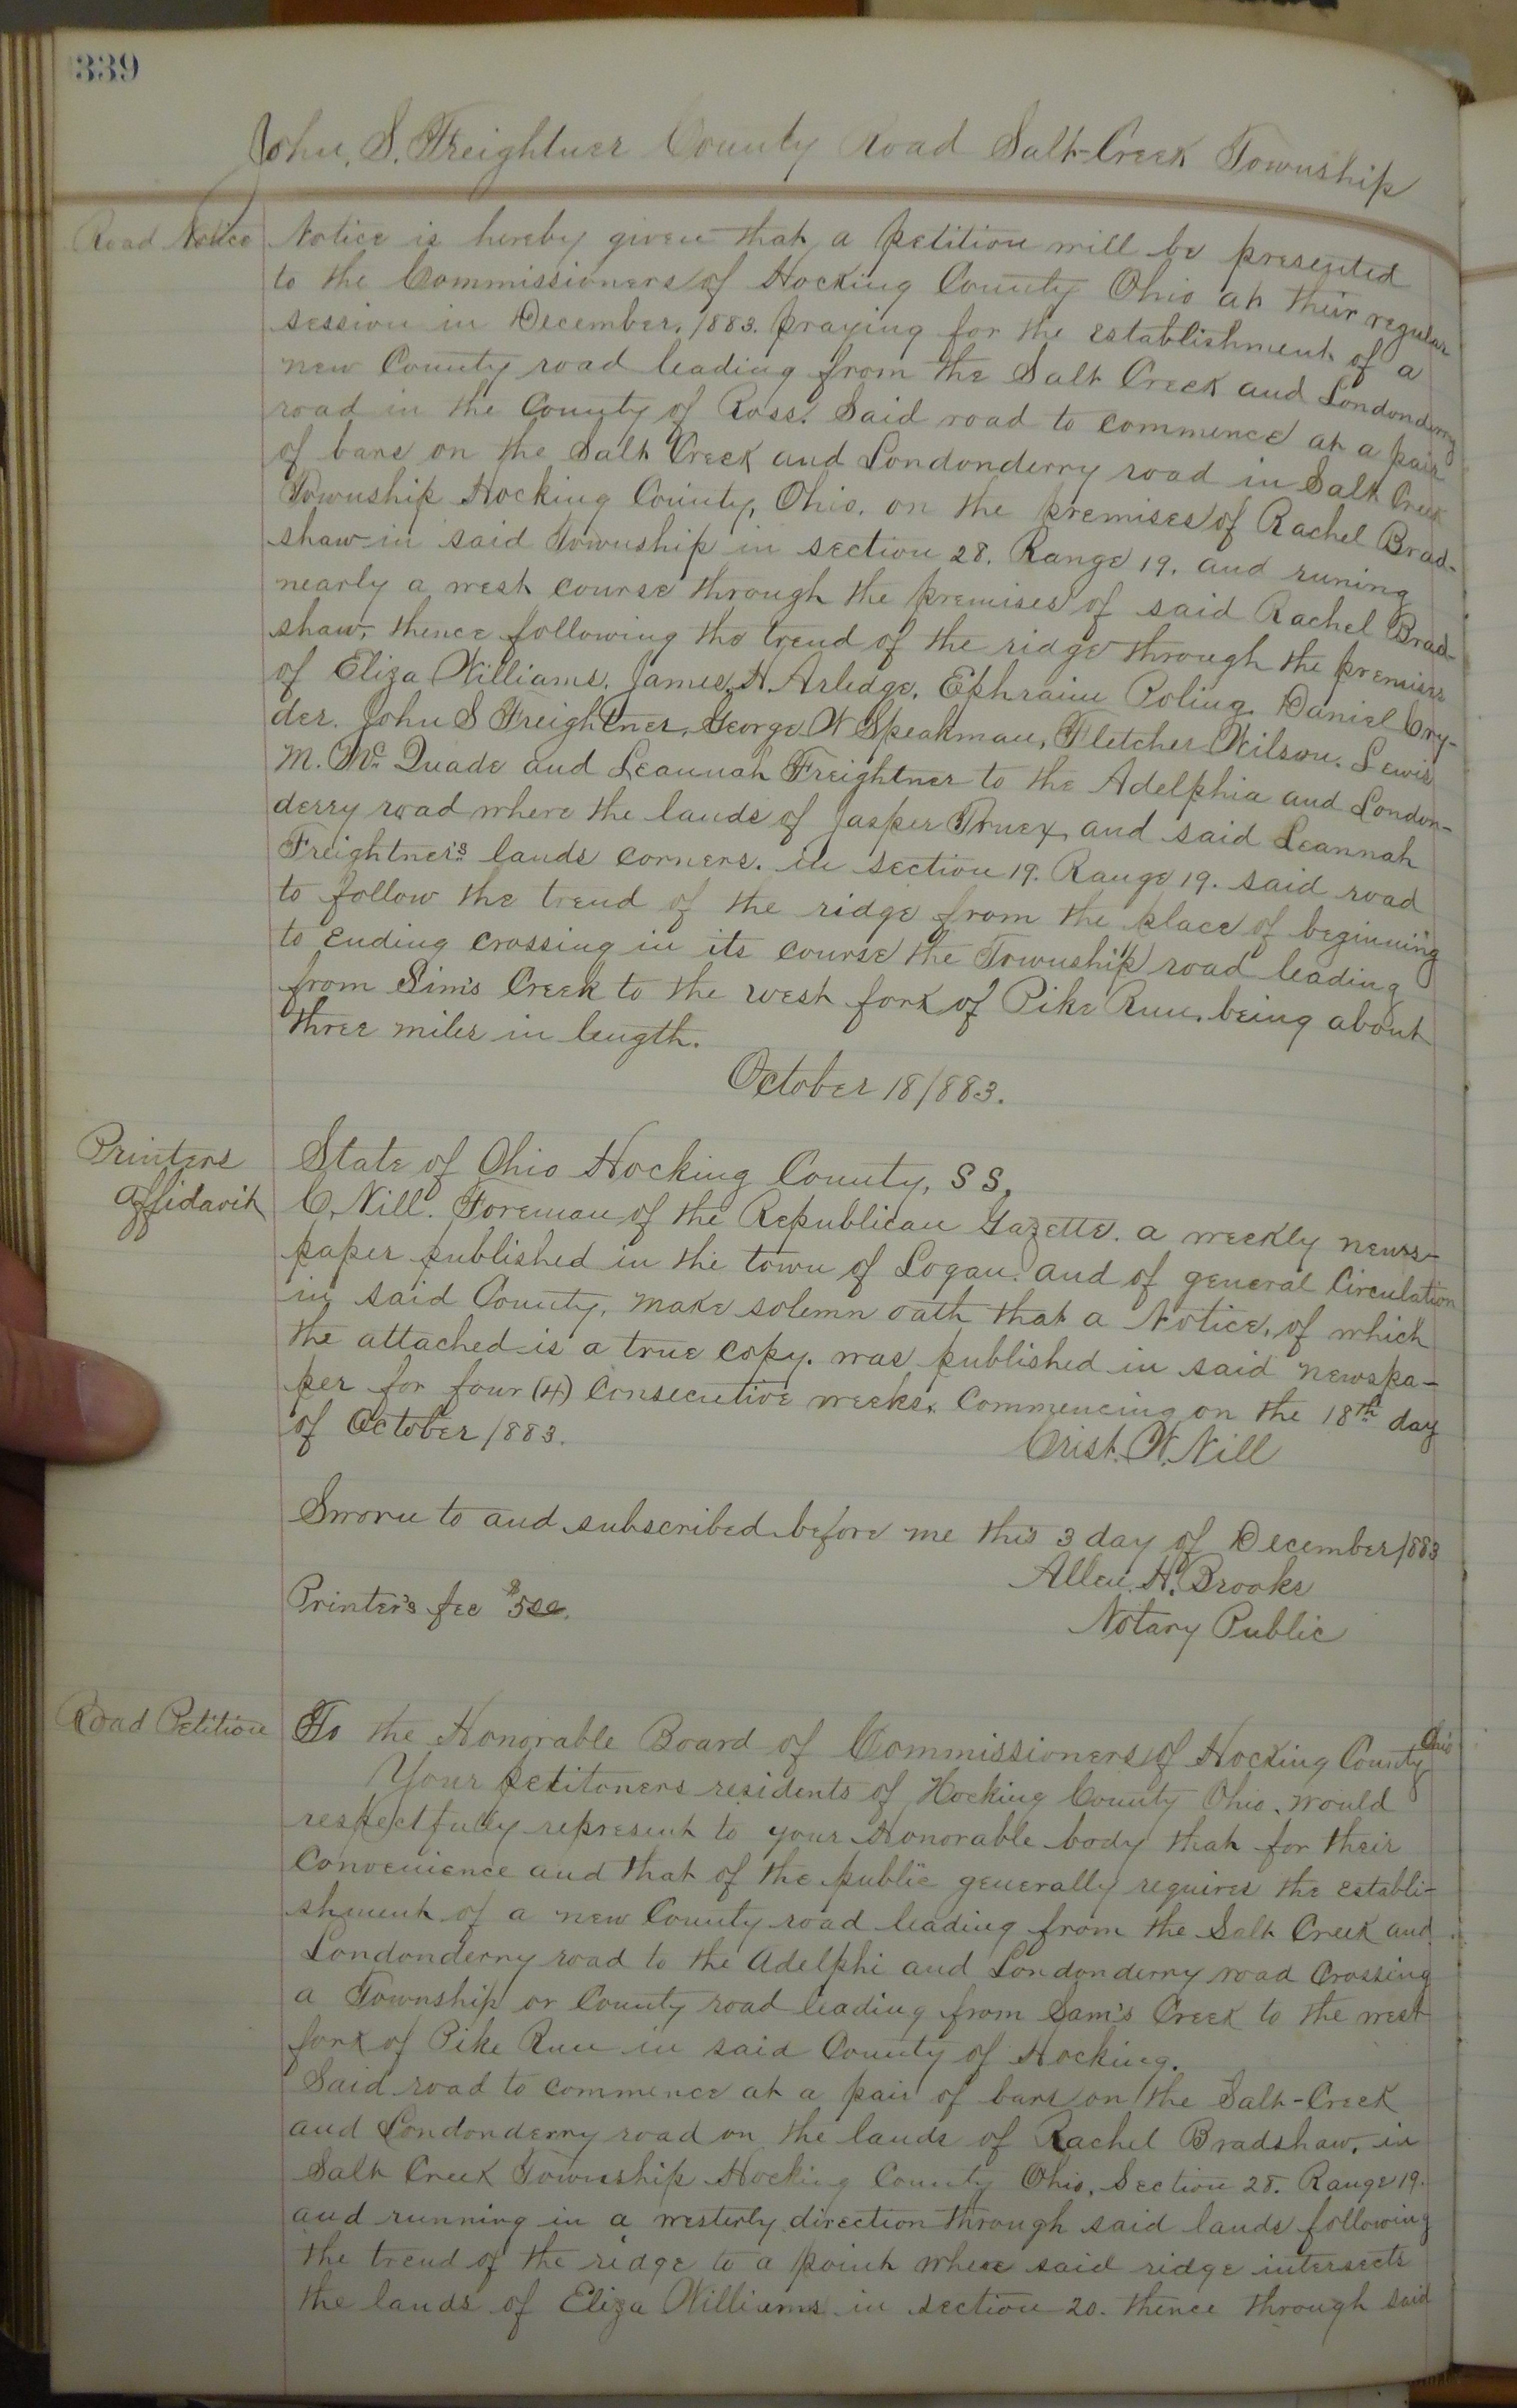 339
John. S. Freightner County Road Salt-Creek Township
Road Notice
Notice is hereby given that a petition will be presented
to the Commissioners of Hocking County Ohio at their regular
session in December, 1883. praying for the establishment of a
new County road leading from the Salt Creek and Londonderry
road in the County of Ross. Said road to commence at a pair
of bars on the Salt Creek and Londonderry road in Salt Creek
Township Hocking County, Ohio. on the premises of Rachel Brad-
shaw in said Township in section 28. Range 19. and runing
nearly a west course through the premises of said Rachel Brad-
shaw, thence following the trend of the ridge through the premises
of Eliza Williams. James. H. Arledge. Ephraim Poling. Daniel Cry-
der. John S Freightner, George W Speakman, Fletcher Wilson. Lewis
M. Mc Quade and Leannah Freightner to the Adelphia and London-
derry road where the lands of Jasper Truex and said Leannah
Freightner's lands corners. in section 19. Range 19. said road
to follow the trend of the ridge from the place of beginning
to Ending crossing in its course the Township road leading
from Sim's Creek to the west fork of Pike Run. being about
three miles in length.
October 18/883.
Printers
Affidavit
State of Ohio Hocking County, SS,
C. Nill. Foreman of the Republican Gazette. a weekly news-
paper published in the town of Logan. and of general Circulation
in said County, make solemn oath that a Notice, of which
the attached is a true copy. was published in said newspa-
per for four (4) Consecutive weeks. Commencing on the 18th day
of October 1883.
Crist. W. Nill
Sworn to and subscribed before me this 3 day of December 1883
Allen. H. Brooks
Printer's fee $5.00.
Notary Public
Road Petition
To the Honorable Board of Commissioners of Hocking County Ohio
Your petitoners residents of Hocking County Ohio. would
respectfully represent to your Honorable body that for their
Convenience and that of the public generally requires the establi-
shment of a new County road leading from the Salt Creek and
Londonderry road to the Adelphi and Londonderry road Crossing
a Township or County road leading from Sam's Creek to the west
fork of Pike Run in said County of Hocking.
Said road to commence at a pair of bars on the Salt-Creek
and Londonderry road on the lands of Rachel Bradshaw, in
Salt Creek Township Hocking County Ohio, Section 28. Range 19.
and running in a westerly direction through said lands following
the trend of the ridge to a point where said ridge intersects
the lands of Eliza Williams in section 20. thence through said